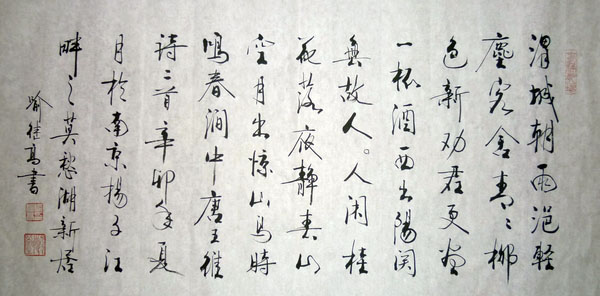 渭城朝雨浥轻
塵客舍青々柳
色新劝君更尽
一杯酒西出陽关
無故人。人闲桂
花落夜静春山
空月出惊山鸟時
鳴春涧中唐王维
诗二首辛卯年夏
月於南京揚子江
畔之莫愁湖新居
喻继高書